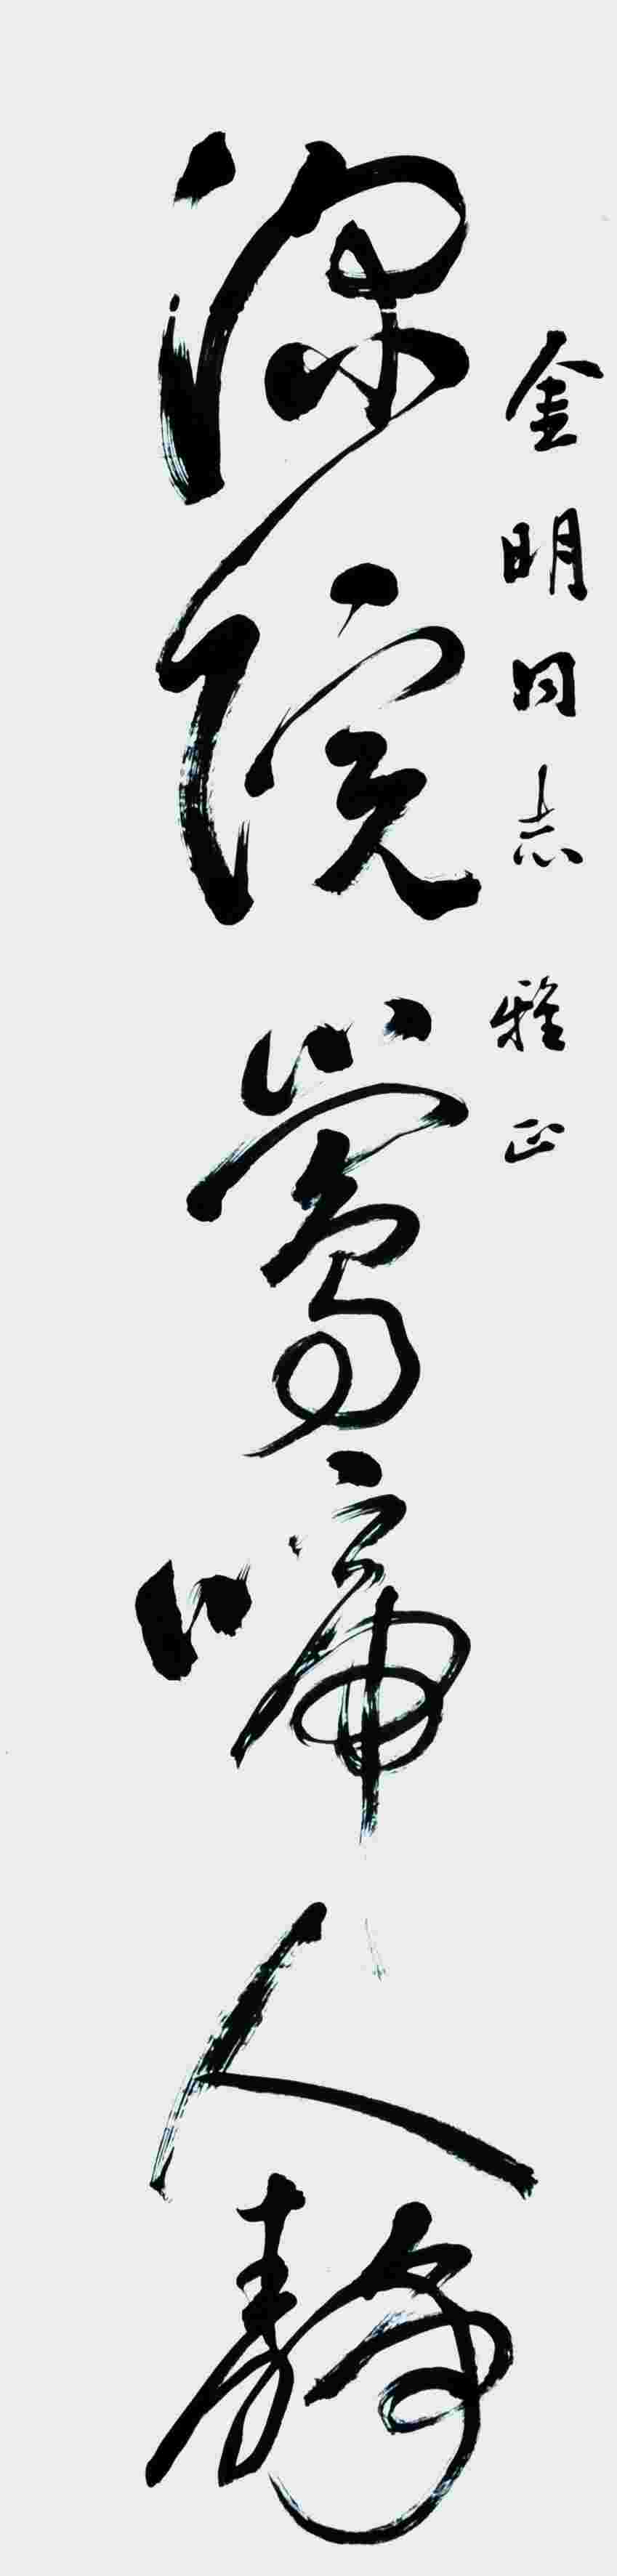 金明同志雅正
深院莺啼人静